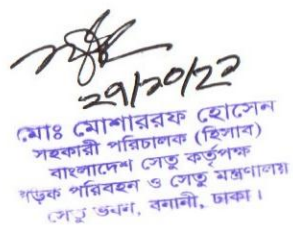 ২৭/১০/২১
মোঃ মোশাররফ হোসেন
সহকারী পরিচালক (হিসাব)
বাংলাদেশ সেতু কর্তৃপক্ষ
সড়ক পরিবহন ও সেতু মন্ত্রণালয়
সেতু ভবন, বনানী, ঢাকা।